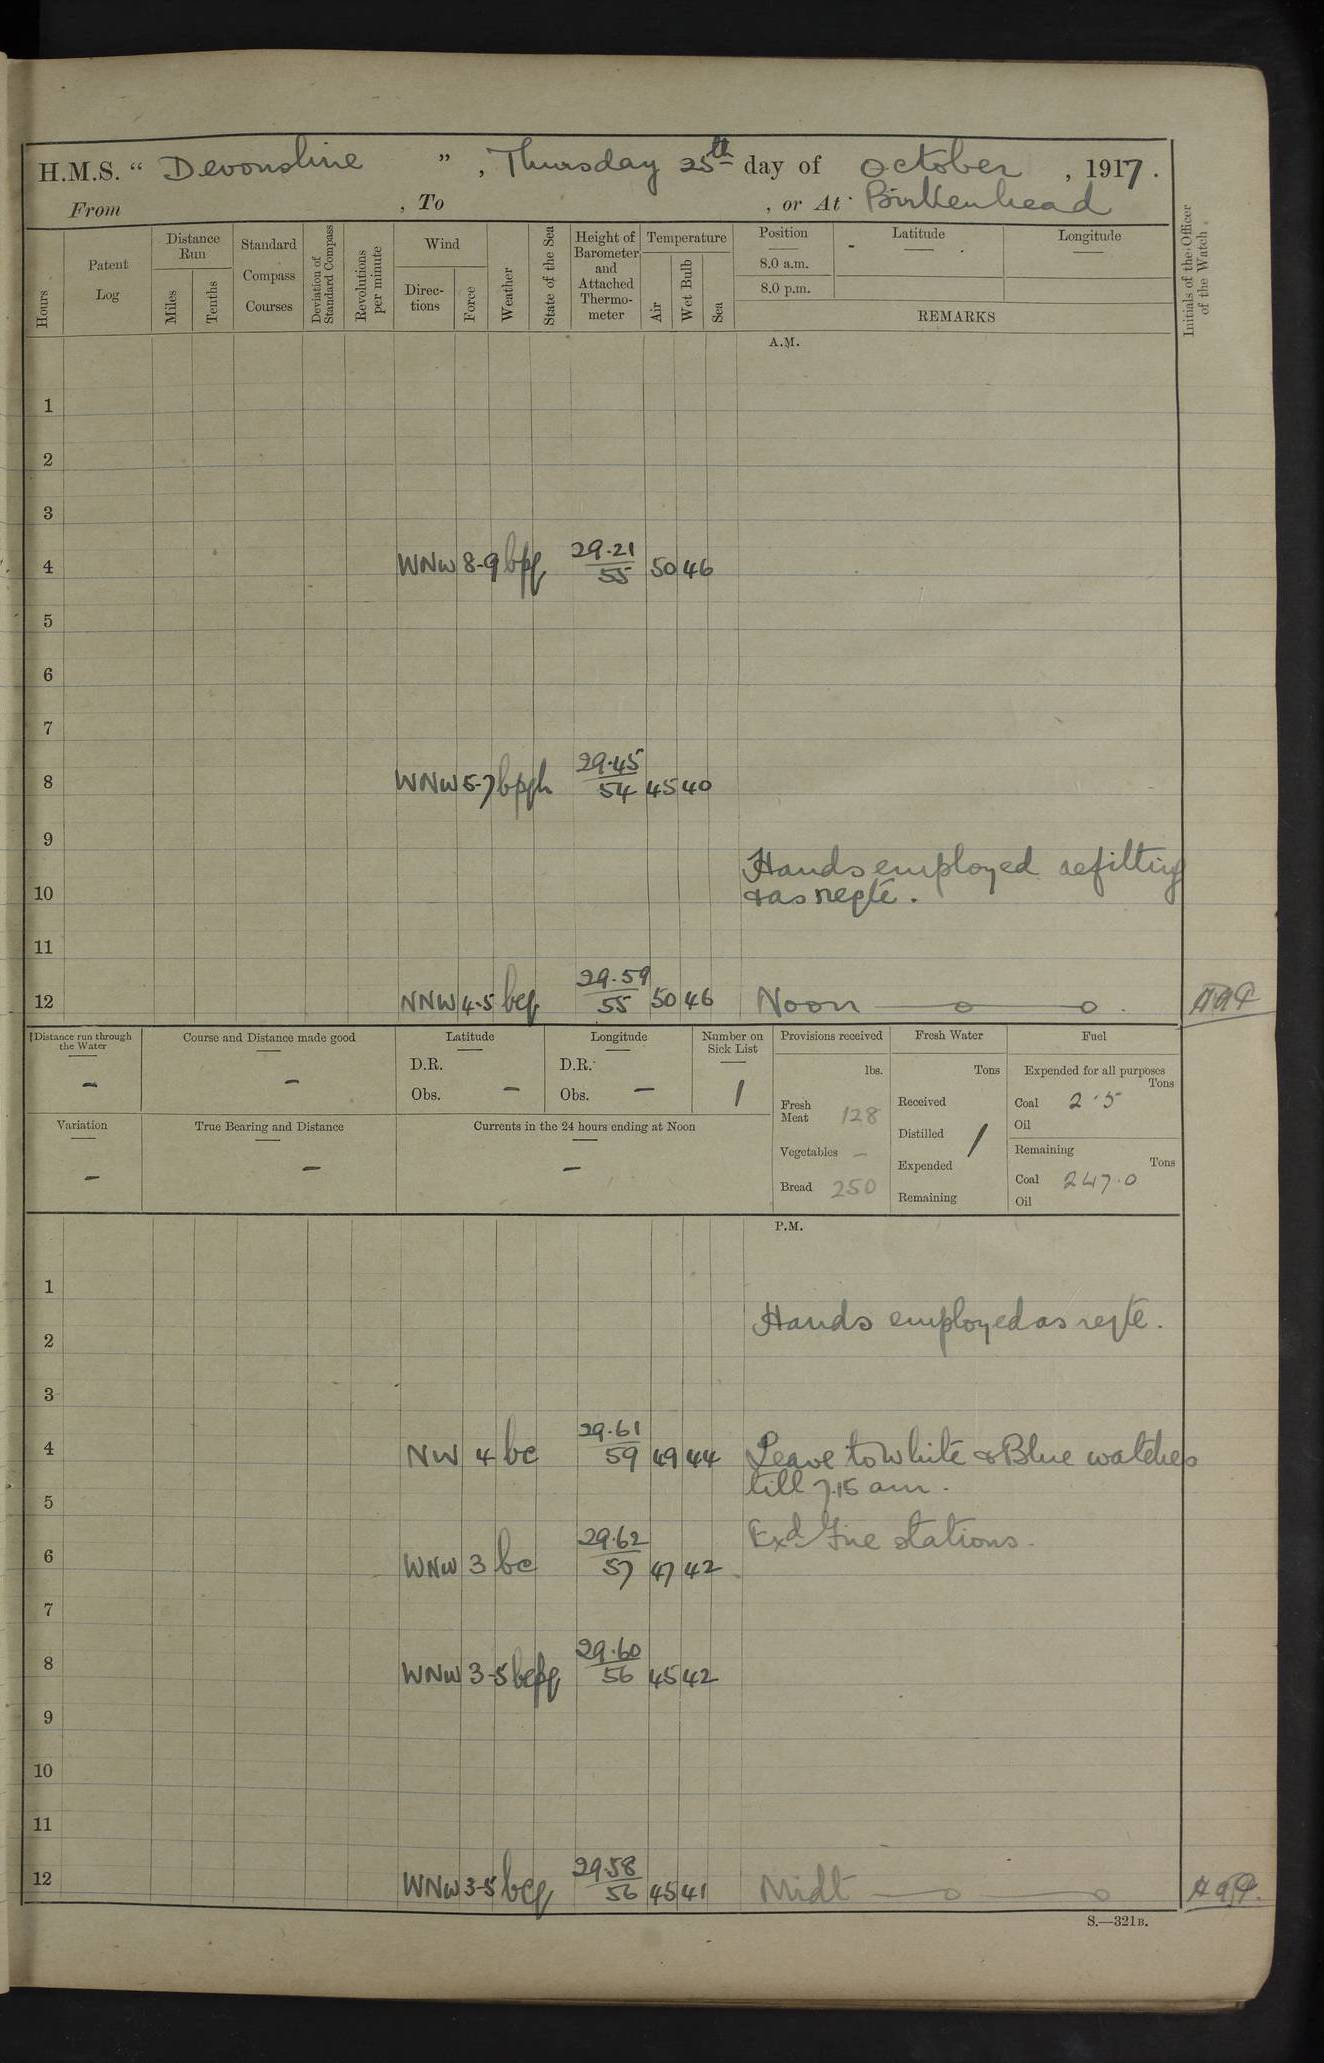 H.M.S. “ Devonshire ”, Thursday 25th day of October, 1917.
From , To , or At Birkenhead
Hours
Patent Log
Distance Run
Miles
Tenths
Standard Compass Courses
Deviation of Standard Compass
Revolutions per minute
Wind
Direc-tions
Force
Weather
State of the Sea
Height of Barometer and Attached Thermo-meter
Temperature
Air
Wet Bulb
Sea
Position
8.0 a.m.
8.0 p.m.
Latitude
Longitude
REMARKS
Initials of the Officer of the Watch.
A.M.
1
2
3
4 WNW 8-9 bpq 29.21 55 50 46
5
6
7
8 WNW 5-7 bpqh 29.45 54 45 40
9
Hands employed refitting
10 & as reqte.
11
12 NNW 4-5 bcq 29.59 55 50 46 Noon
Distance run through the Water
-
Course and Distance made good
-
Latitude
D.R.
Obs. -
Longitude
D.R.
Obs. -
Number on Sick List
1
Provisions received
lbs.
Fresh Meat 128
Vegetables -
Bread 250
Fresh Water
Tons
Received
Distilled /
Expended
Remaining
Fuel
Expended for all purposes
Tons
Coal 2.5
Oil
Remaining
Tons
Coal 247.0
Oil
Variation
-
True Bearing and Distance
-
Currents in the 24 hours ending at Noon
-
P.M.
1
Hands employed as reqte.
2
3
4 NW 4 bc 29.61 59 49 44 Leave to White & Blue watches
till 7.15 am.
5
Exd Fire stations.
6 WNW 3 bc 29.62 57 47 42
7
8 WNW 3-5 bcpq 29.60 56 45 42
9
10
11
12 WNW 3-5 bcq 29.58 56 45 41 Midt
S.—321B.